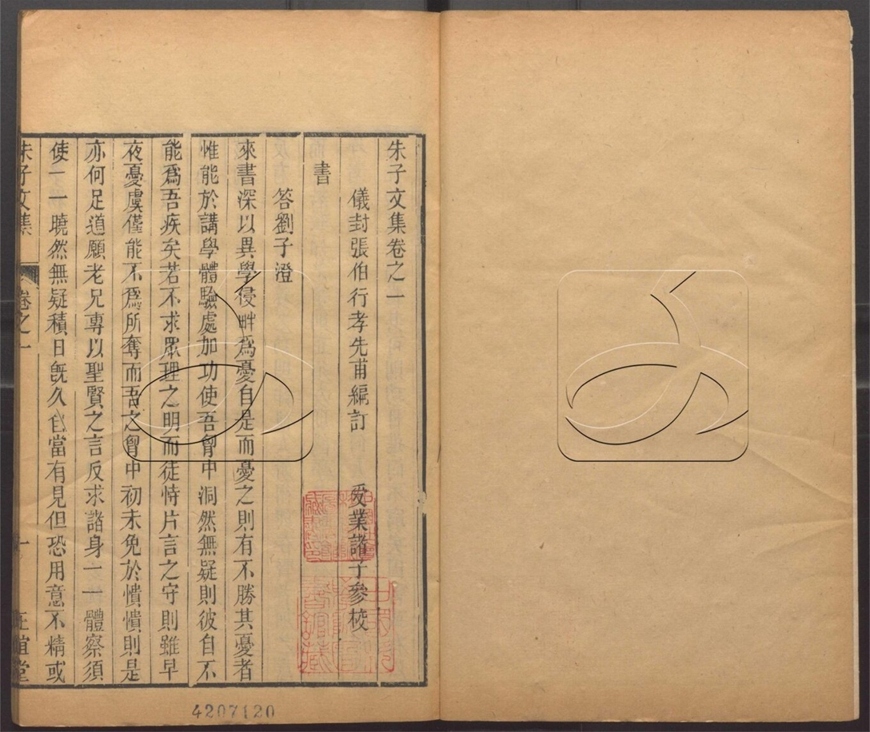 朱子文集卷之一
儀封張伯行孝先甫編訂 受業諸子參校
書
答劉子澄
來書深以異學侵畔爲憂自是而憂之則有不勝其憂者
惟能於講學體驗處加功使吾胷中洞然無疑則彼自不
能爲吾疾矣若不求眾理之明而徒恃片言之守則雖早
夜憂虞僅能不爲所奪而吾之胷中初未免於憒憒則是
亦何足道願老兄專以聖賢之言反求諸身一一體察須
使一一曉然無疑積日旣久自當有見但恐用意不精或
朱子文集 卷之一 一 正誼堂
4207120